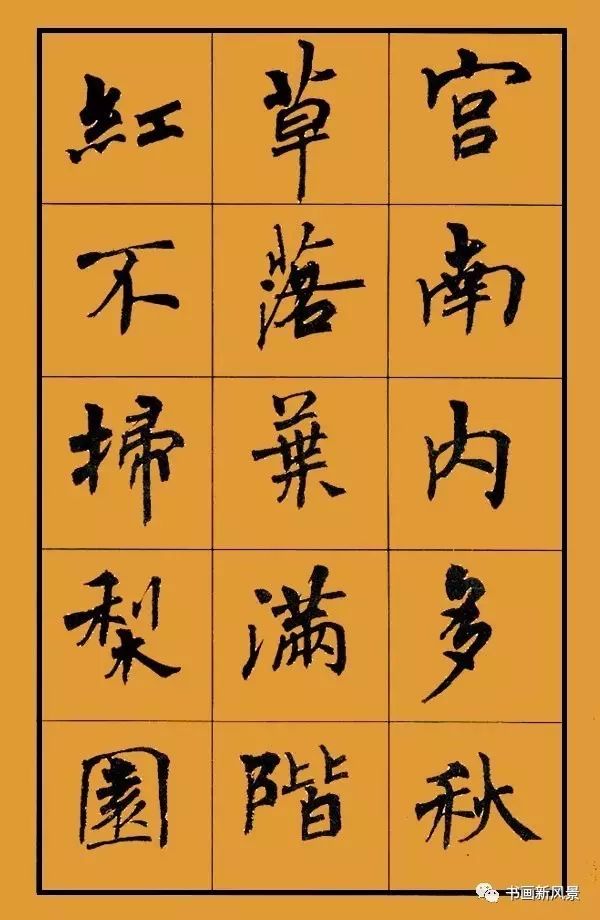 宫南内多秋
草落葉满階
紅不掃梨園
书画新风景